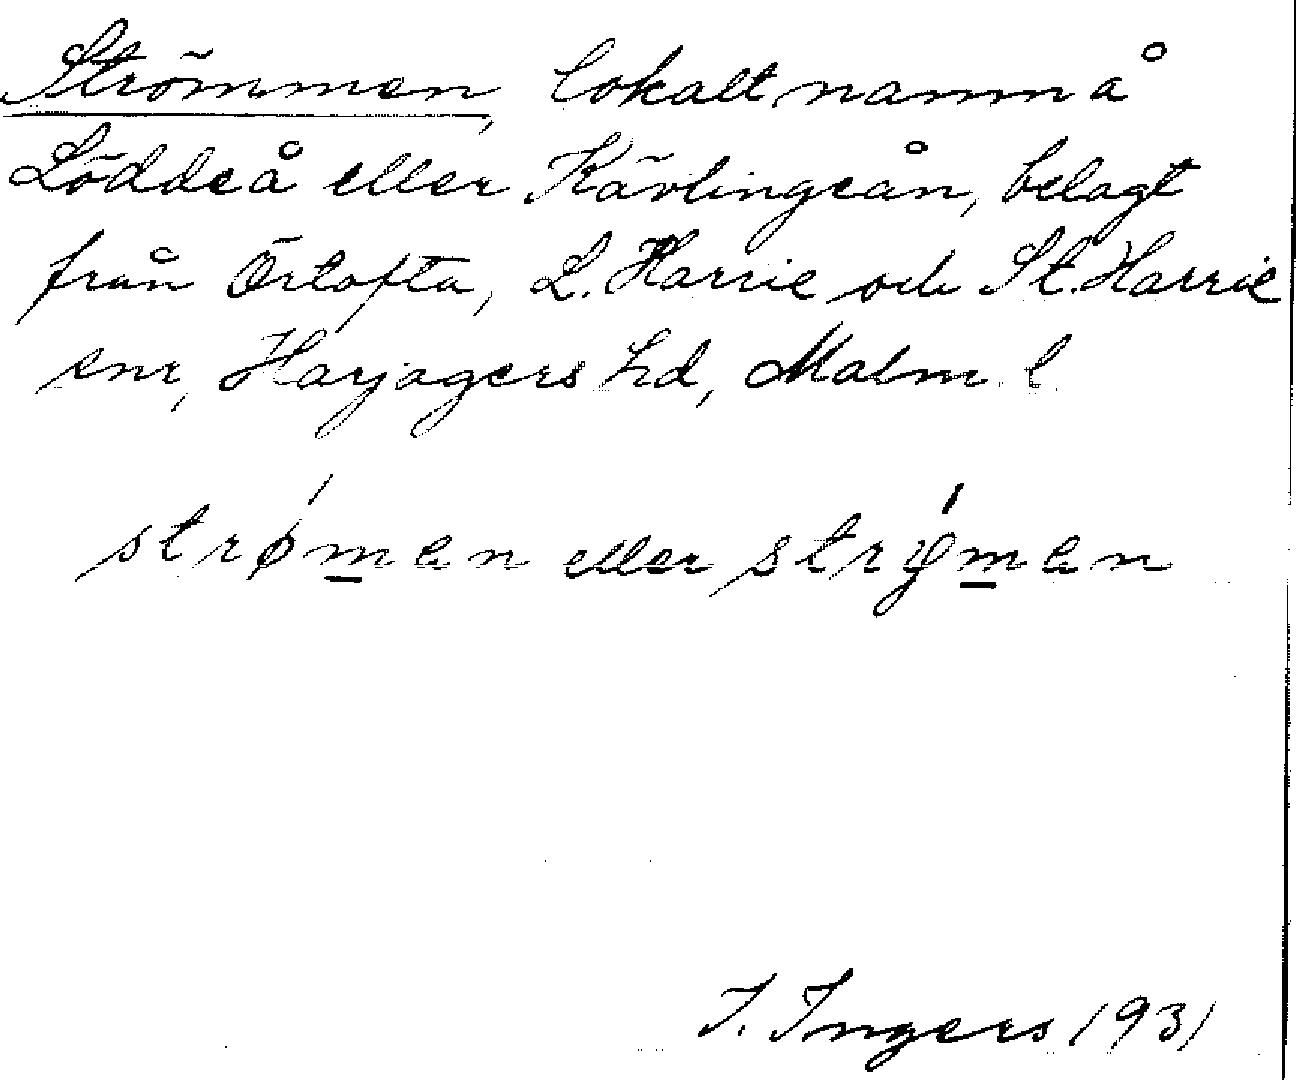 Strömmen, lokalt namn å
Löddeå eller Kävlingeån, belagt
från Örtofta, L. Harrie och St. Harrie
snr, Harjagers hd, Malm. l.
strø´m̲en eller strø̨´m̲en
I. Ingers 1931